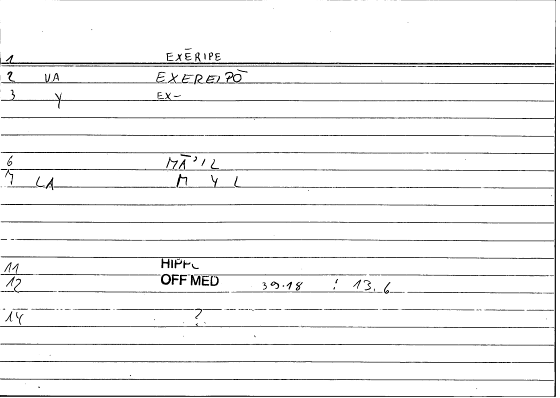 1 EXĒRIPE
2 VA EXEREIPŌ
3 Y EX-
6 MĀ'IL
7 LA M Y L
11 HIPPC
12 OFF MED 39.18 : 13.6
14 ?